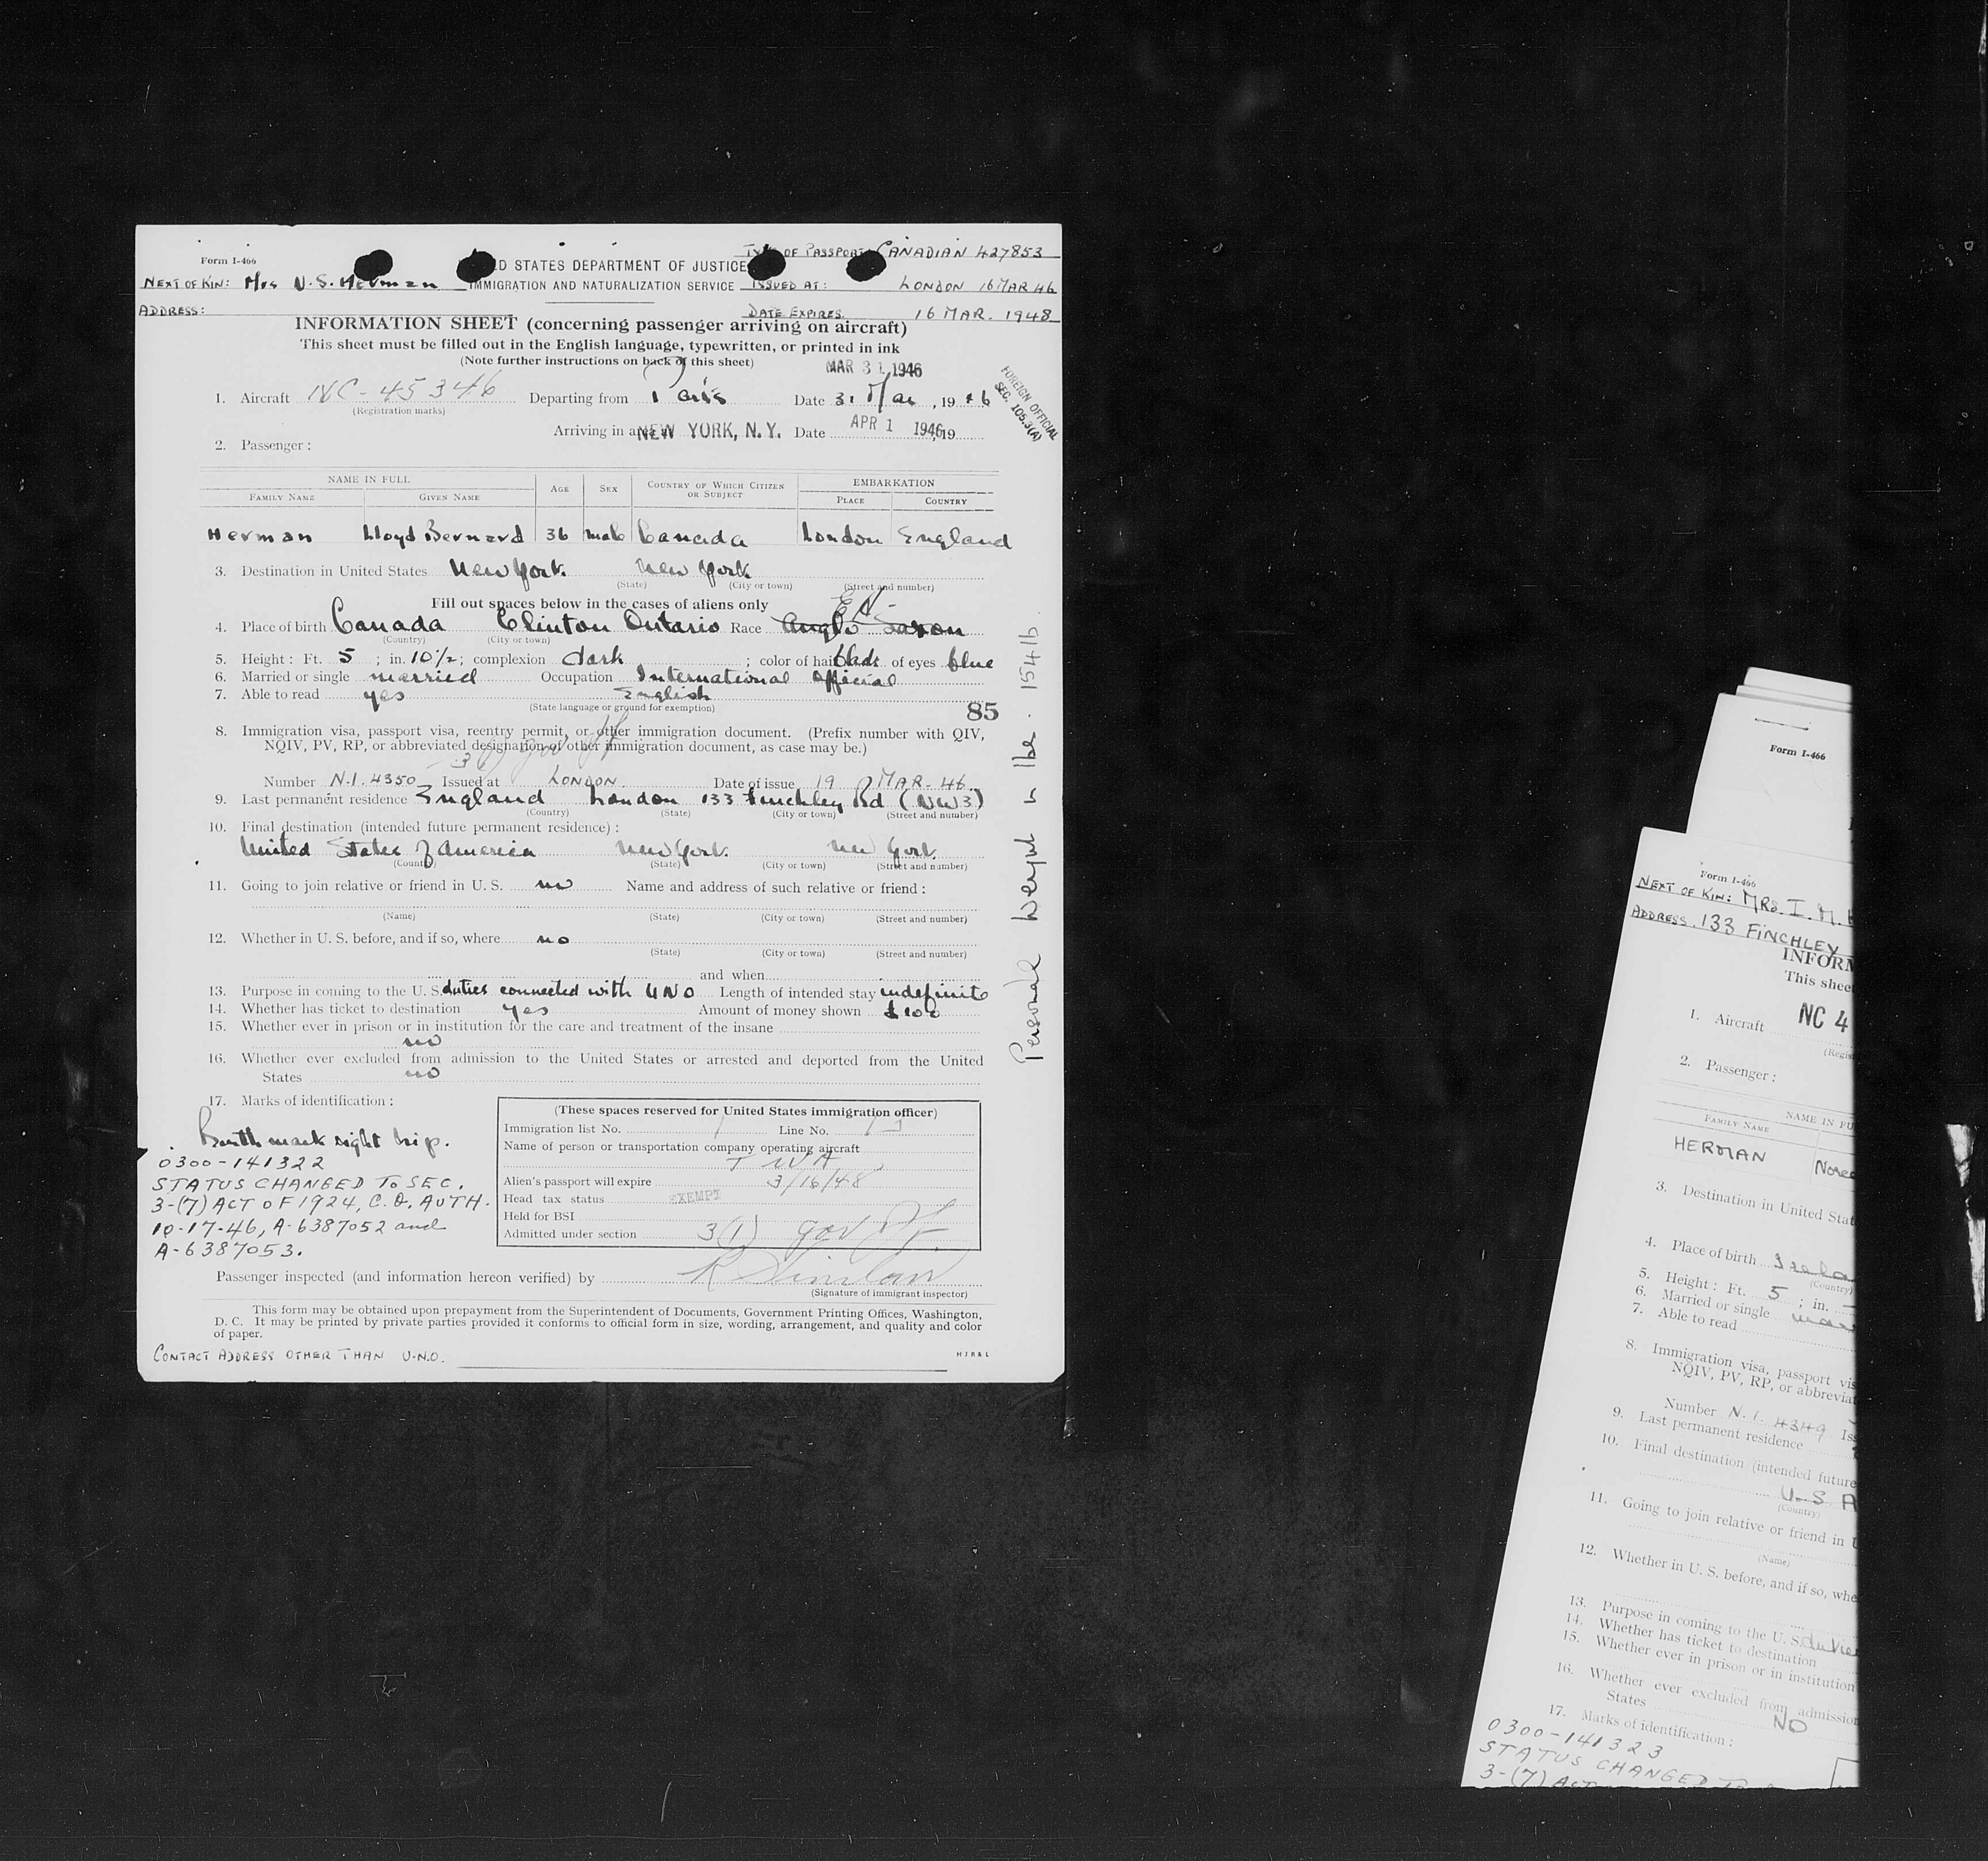 Form I-466
TYPE OF PASSPORT CANADIAN 427853
D STATES DEPARTMENT OF JUSTICE
NEXT OF KIN: Mrs N.S. Herman
IMMIGRATION AND NATURALIZATION SERVICE
ISSUED AT: LONDON 16 MAR 46
ADDRESS:
DATE EXPIRES. 16 MAR. 1948
INFORMATION SHEET (concerning passenger arriving on aircraft)
This sheet must be filled out in the English language, typewritten, or printed in ink
(Note further instructions on back of this sheet)
MAR 31 1946
FOREIGN OFFICIAL
SEC. 105.3(A)
1. Aircraft NC-45346 Departing from Paris Date 31 Mar, 1946
(Registration marks)
Arriving in a NEW YORK, N.Y. Date APR 1 1946, 19
2. Passenger :
NAME IN FULL
AGE SEX COUNTRY OF WHICH CITIZEN OR SUBJECT EMBARKATION
FAMILY NAME GIVEN NAME PLACE COUNTRY
Herman Lloyd Bernard 36 male Canada London England
3. Destination in United States New York New York
(State) (City or town) (Street and number)
Fill out spaces below in the cases of aliens only
4. Place of birth Canada Clinton Ontario Race Anglo Saxon
(Country) (City or town)
5. Height: Ft. 5 ; in. 10 1/2; complexion dark ; color of hair black of eyes blue
6. Married or single married Occupation International Official
7. Able to read yes English
(State language or ground for exemption)
85
8. Immigration visa, passport visa, reentry permit, or other immigration document. (Prefix number with QIV,
NQIV, PV, RP, or abbreviated designation of other immigration document, as case may be.)
Number N.I. 4350 Issued at LONDON Date of issue 19 MAR. 46
9. Last permanent residence England London 133 Finchley Rd (NW3)
(Country) (State) (City or town) (Street and number)
10. Final destination (intended future permanent residence) :
United States of America New York New York
(Country) (State) (City or town) (Street and number)
11. Going to join relative or friend in U. S. no Name and address of such relative or friend :
(Name) (State) (City or town) (Street and number)
12. Whether in U. S. before, and if so, where no
(State) (City or town) (Street and number)
and when
13. Purpose in coming to the U. S. duties connected with UNO Length of intended stay indefinite
14. Whether has ticket to destination yes Amount of money shown
15. Whether ever in prison or in institution for the care and treatment of the insane
no
16. Whether ever excluded from admission to the United States or arrested and deported from the United
States no
17. Marks of identification :
Birth mark right hip.
0300-141322
STATUS CHANGED TO SEC.
3-(7) ACT OF 1924, C.O. AUTH.
10-17-46, A-6387052 and
A-6387053.
(These spaces reserved for United States immigration officer)
Immigration list No. 1 Line No.
Name of person or transportation company operating aircraft
TWA
Alien's passport will expire 3/16/48
Head tax status EXEMPT
Held for BSI
Admitted under section 3(1) gov
Passenger inspected (and information hereon verified) by
(Signature of immigrant inspector)
This form may be obtained upon prepayment from the Superintendent of Documents, Government Printing Offices, Washington,
D. C. It may be printed by private parties provided it conforms to official form in size, wording, arrangement, and quality and color
of paper.
CONTACT ADDRESS OTHER THAN U.N.O.
H J R & L
Personal 154 lb
Form I-466
Form I-466
NEXT OF KIN: MRS. I. M.
ADDRESS. 133 FINCHLEY
INFORM
This sheet
1. Aircraft NC 4
(Regis
2. Passenger :
NAME IN FU
FAMILY NAME
HERMAN
3. Destination in United Stat
4. Place of birth Irela
(Country)
5. Height: Ft. 5 ; in.
6. Married or single
7. Able to read
8. Immigration visa, passport vis
NQIV, PV, RP, or abbreviat
Number N.I. 4349 Iss
9. Last permanent residence
10. Final destination (intended future
U.S A
(Country)
11. Going to join relative or friend in U
(Name)
12. Whether in U. S. before, and if so, whe
13. Purpose in coming to the U. S. dutie
14. Whether has ticket to destination
15. Whether ever in prison or in institution
16. Whether ever excluded from admission
States NO
17. Marks of identification :
0300-141323
STATUS CHANGED TO
3-(7) ACT